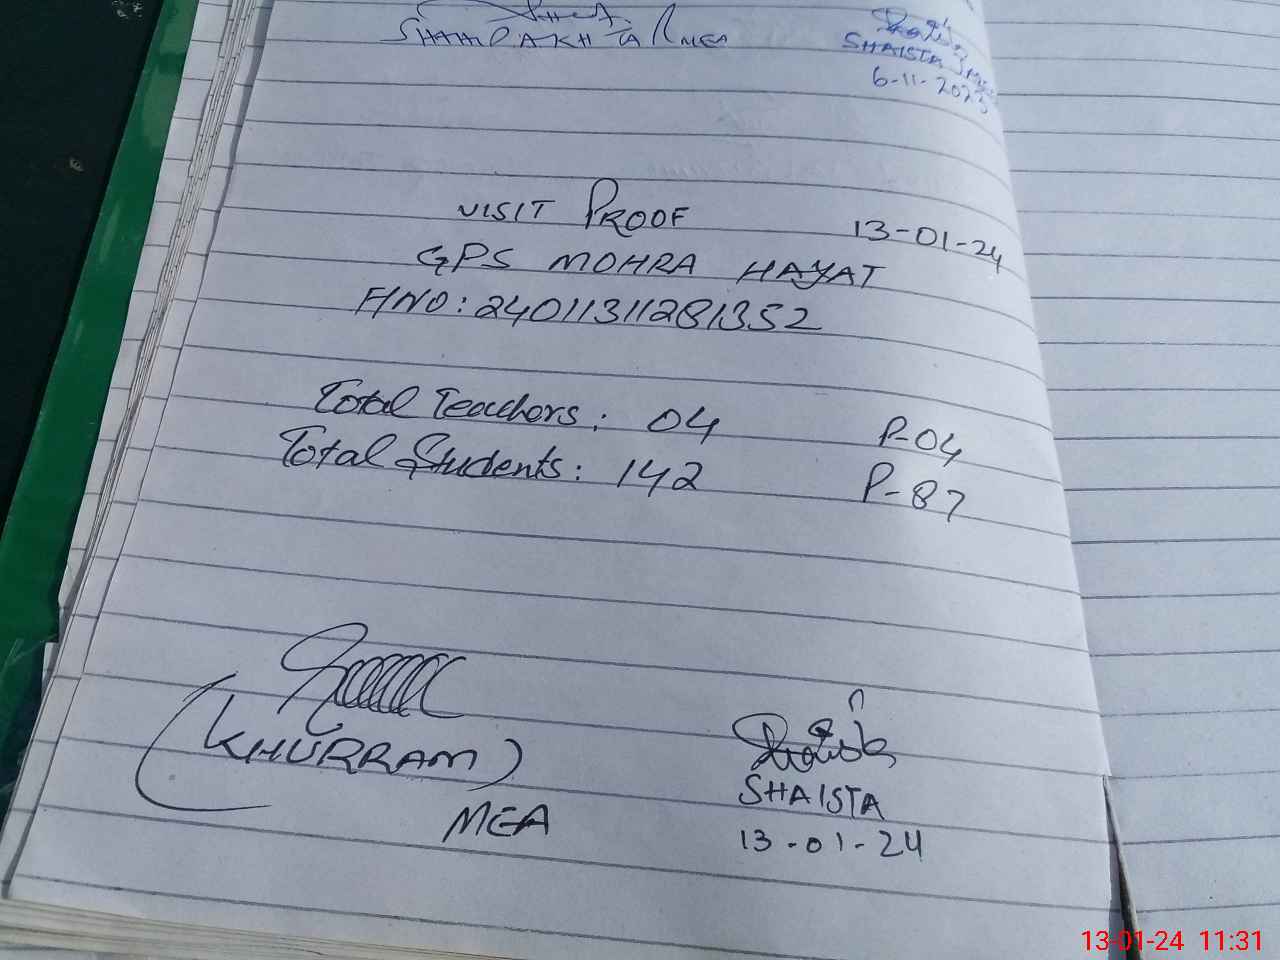 SHAISTA
6-11-2023
VISIT PROOF 13-01-24
GPS MOHRA HAYAT
F/NO: 24011311281352
Total Teachers: 04 P-04
Total Students: 142 P-87
(KHURRAM)
MEA
SHAISTA
13-01-24
13-01-24 11:31